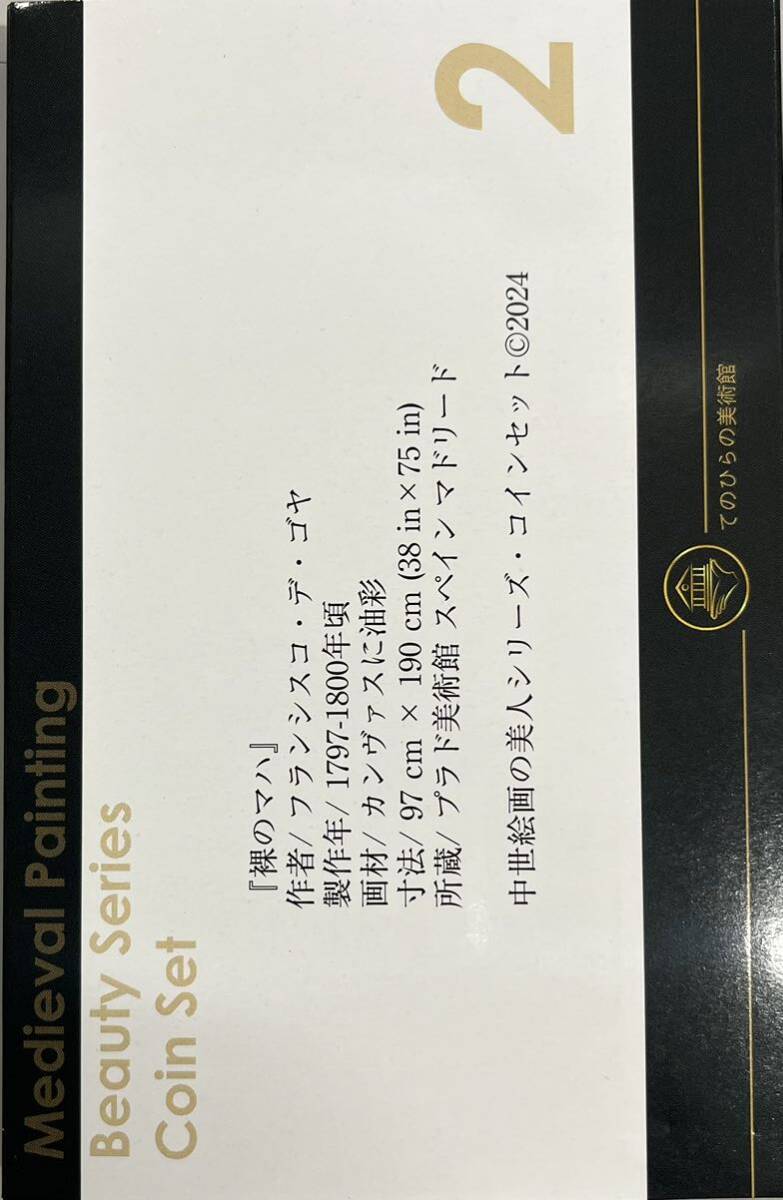 Medieval Painting
Beauty Series
Coin Set
2
『裸のマハ』
作者/ フランシスコ・デ・ゴヤ
製作年/ 1797-1800年頃
画材/ カンヴァスに油彩
寸法/ 97 cm × 190 cm (38 in×75 in)
所蔵/ プラド美術館 スペイン マドリード
中世絵画の美人シリーズ・コインセット©2024
てのひらの美術館